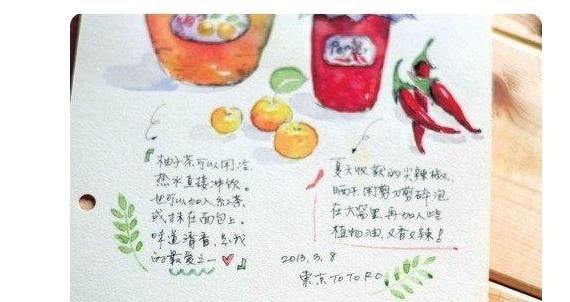 柚子茶可以用冷.
热水直接冲饮。
也可以加入红茶
或抹在面包上。
味道清香.是我
的最爱之一
夏天收获的尖辣椒.
晒干.用剪刀剪碎泡
在大酱里.再加入些
植物油.又香又辣!
2013.3.8
東京TOTORO